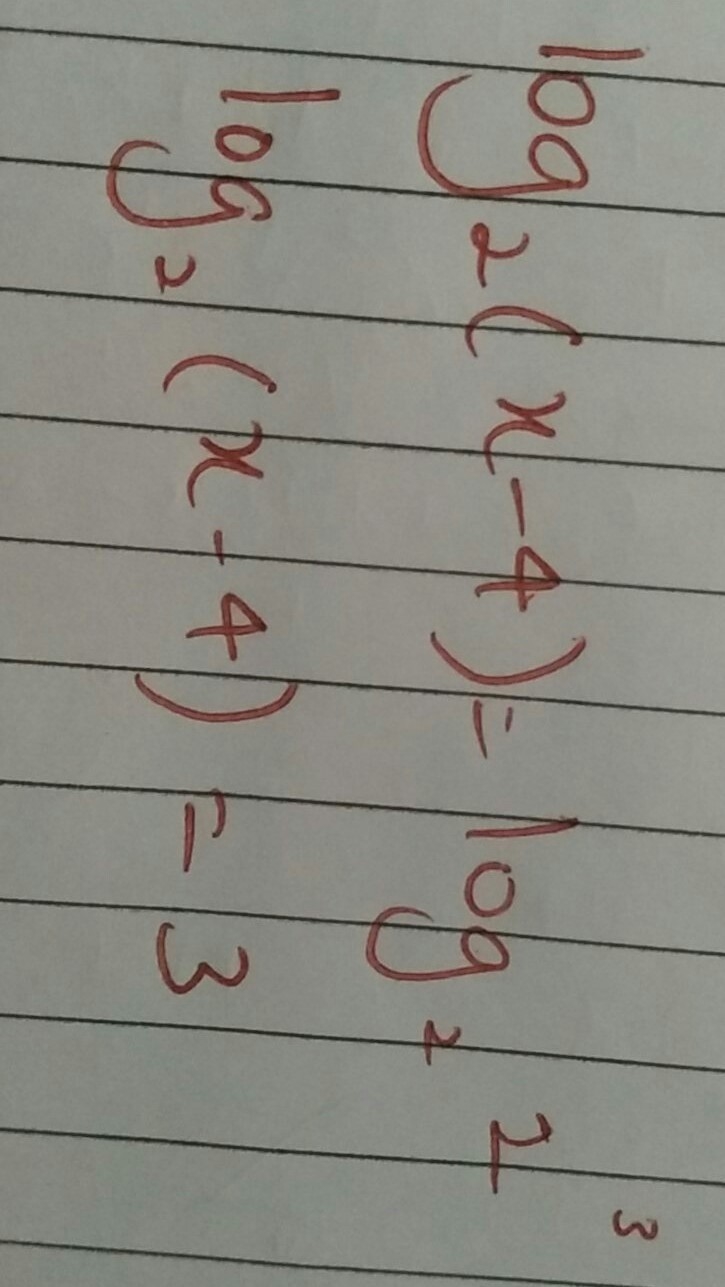 log₂(x-4) = log₂ 2³
log₂(x-4) = 3